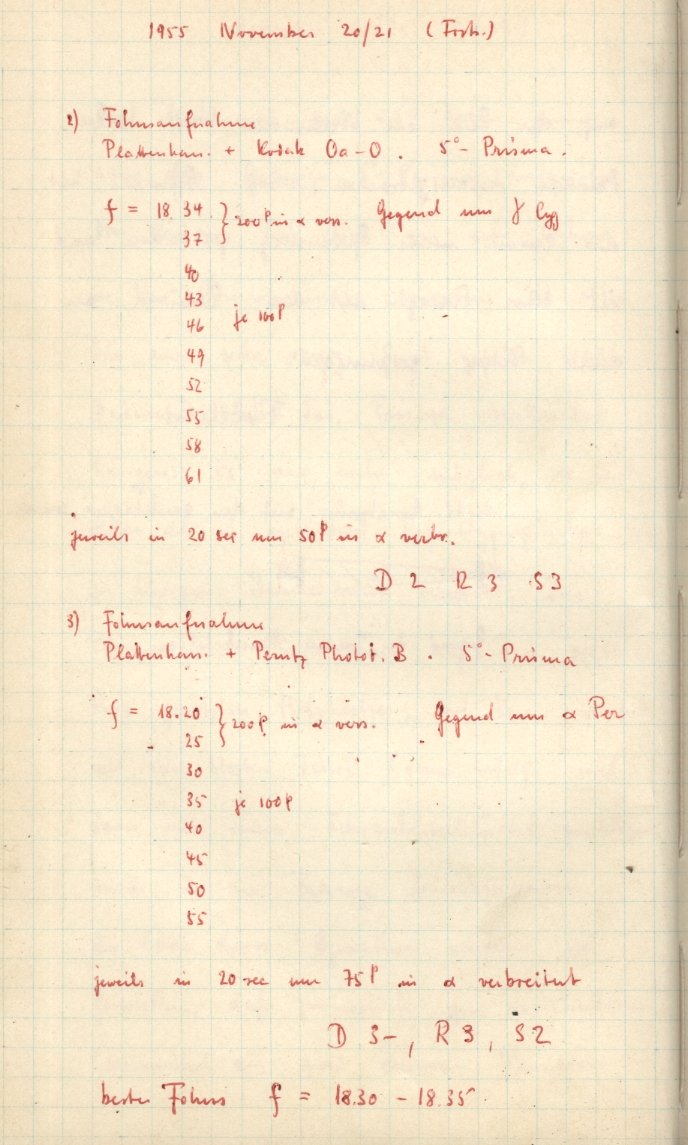 1955 November 20/21 (Forts.)
2) Fokusaufnahme
Plattenhau. + Kodak Oa-O. 5°-Prisma.
f = 18.34 } 200P in α vers. Gegend um γ Cyg
37
40
43
46 je 100P
49
52
55
58
61
jeweils in 20 sec um 50P in α verbr.
D 2 R 3 S3
3) Fokusaufnahme
Plattenhau. + Perutz Photot. B. 5°-Prisma
f = 18.20 } 200P in α vers. Gegend um α Per
25
30
35 je 100P
40
45
50
55
jeweils in 20 sec um 75P in α verbreitert
D 3-, R 3, S2
bester Fokus f = 18.30 - 18.35